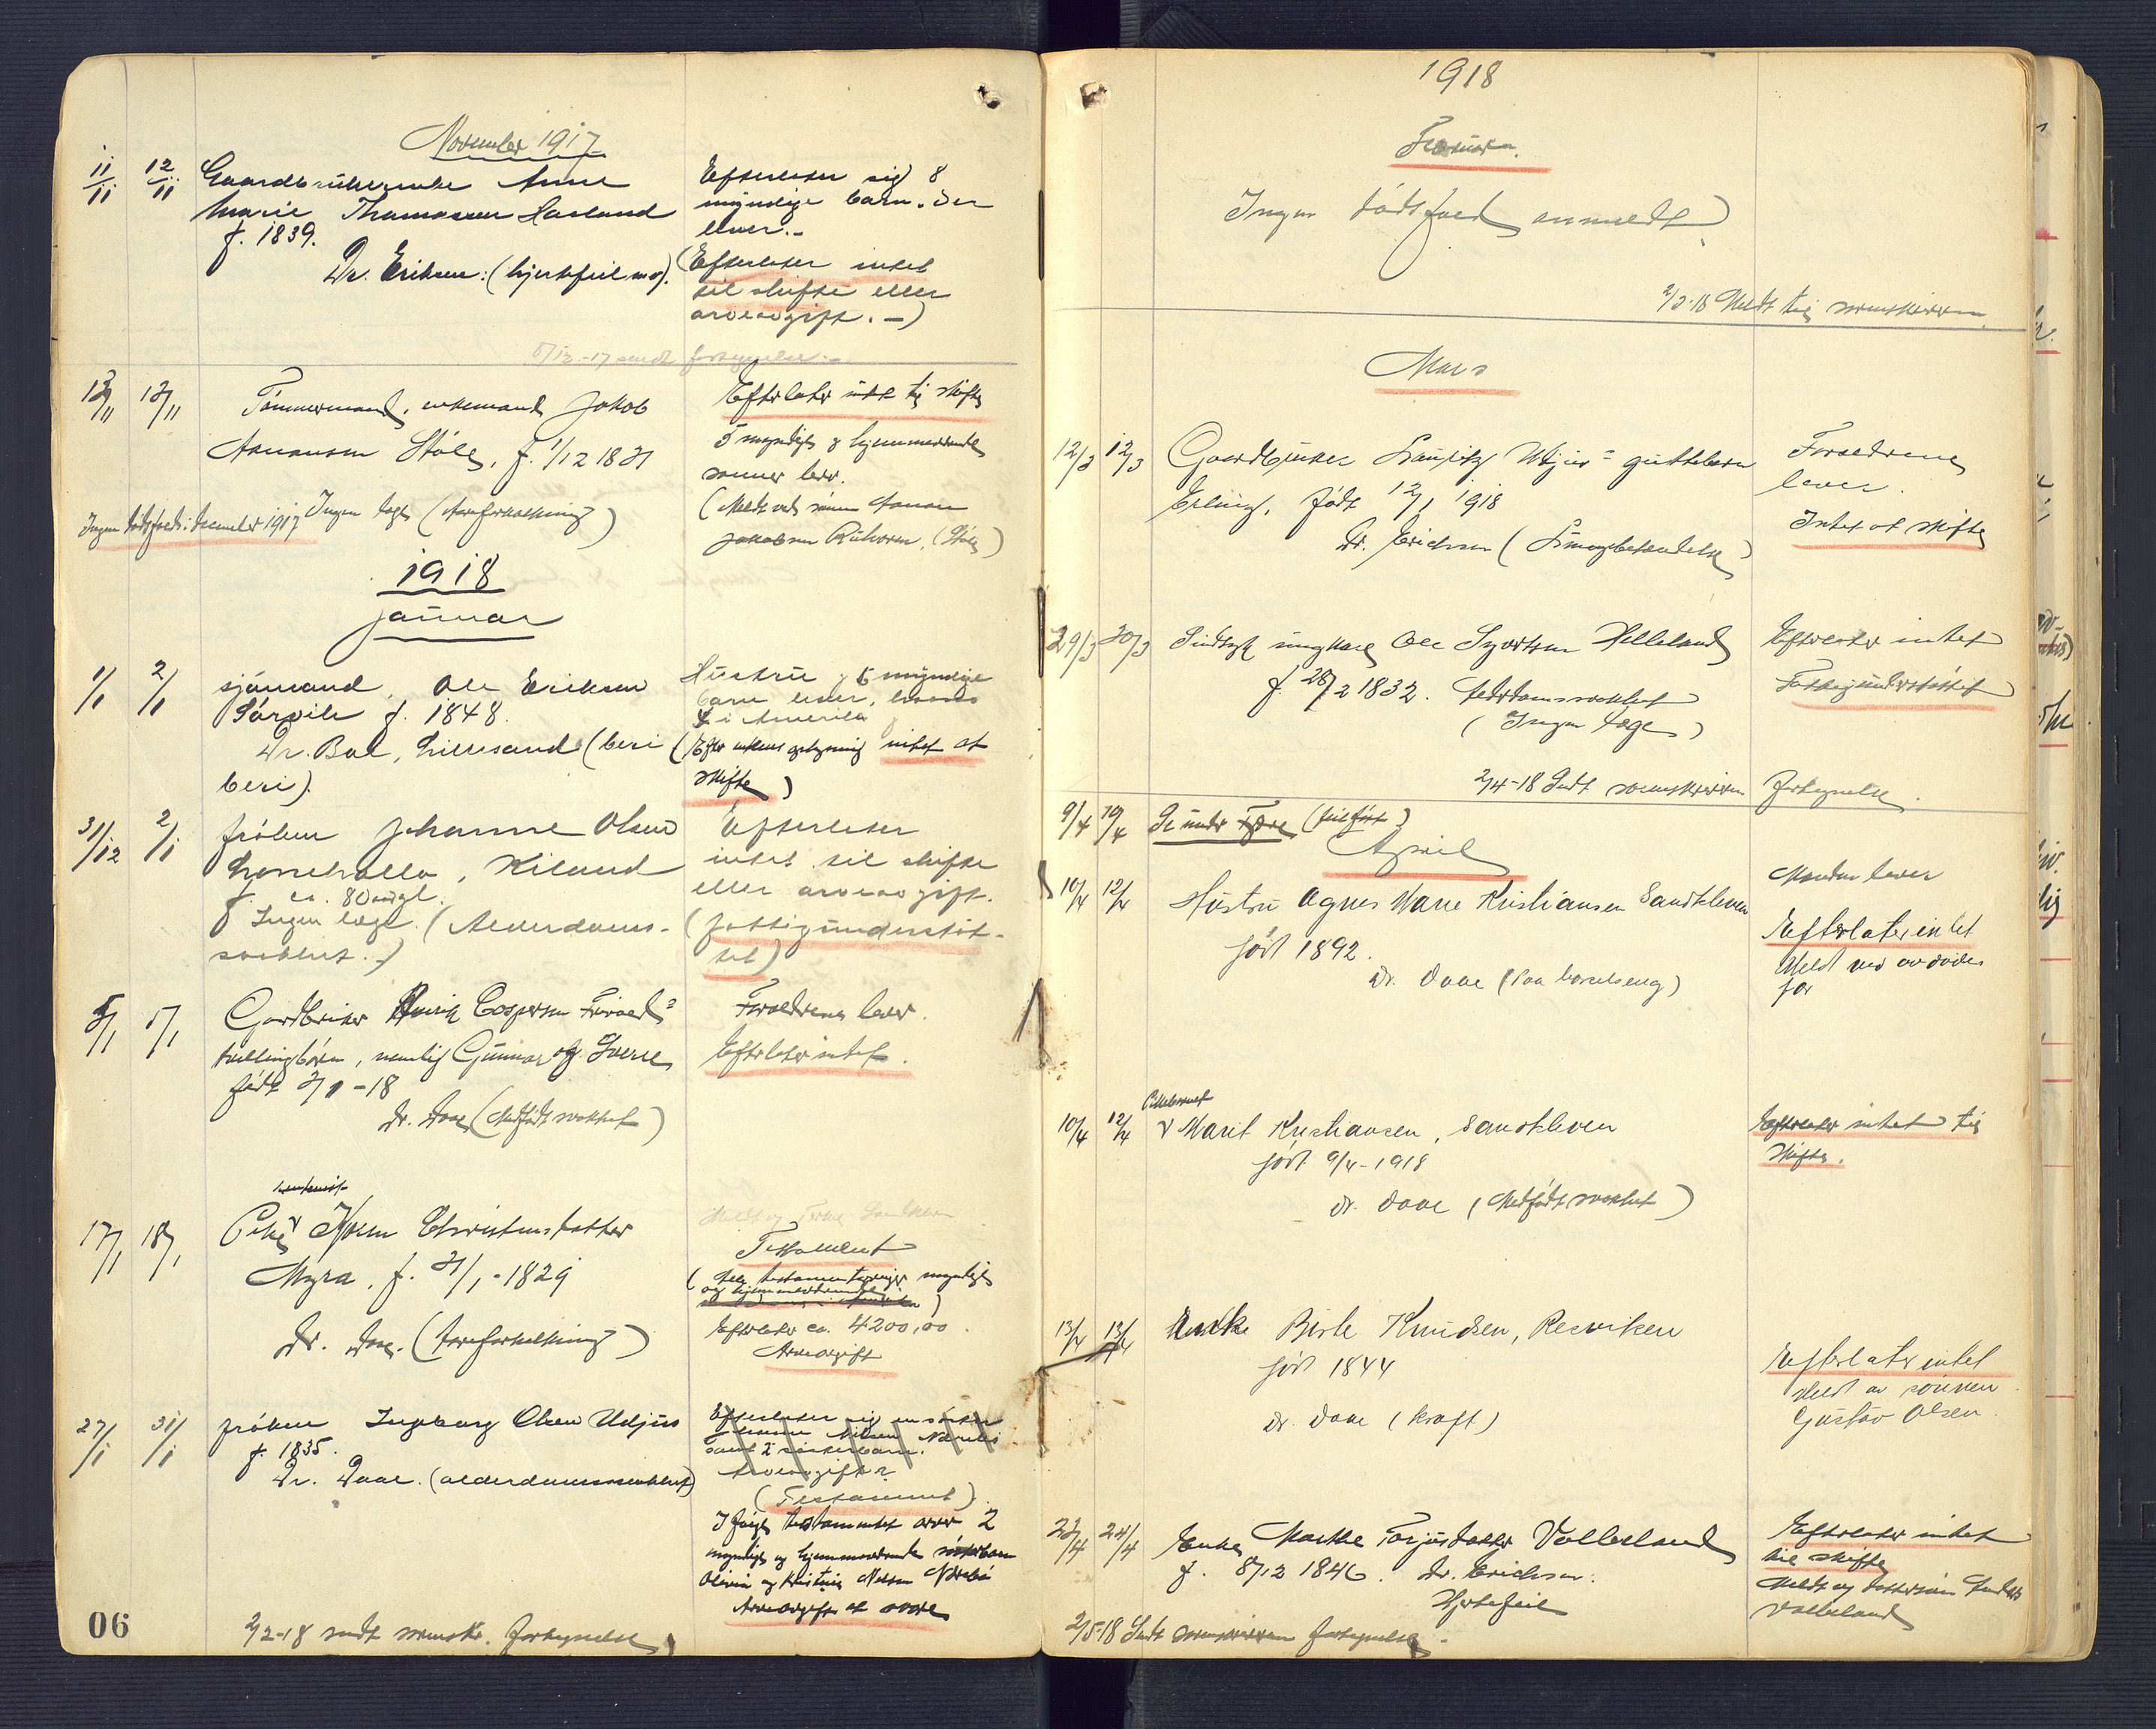 November 1917
11/11 12/11 Gaardbrukerenke Anne
Marie Thomassen Hasland
f. 1839.
Dr. Eriksen: (hjertefeil m.v.).
Efterlater sig 8
myndige barn. Der
lever.-
(Efterlater intet
til skifte eller
arveavgift. -)
5/12-17 sendt fortegnelse.-
13/11 13/11 Tømmermand, enkemand Jakob
Aanansen Støle, f. 1/12 1831
Ingen læge (Aareforkalkning)
Efterlater intet til skifte
5 myndige og hjemmeværende
sønner lever.
(Meldt ved sønn Aanon
Jakobsen (Støle)
Ingen dødsfald i december 1917
1918
Januar
1/1 2/1 sjømand, Ole Eriksen
f. 1848.
Dr. Boe, Lillesand (beri
beri).
Hustru og 5 myndige
barn lever,
4 i Amerika
(Efter enkens intet at
skifte)
31/12 2/1 frøken Johanne Olsen
Kiland
f. ca. 80 aar gl.
Ingen læge. (Alderdoms-
svakhet.-)
Efterlater
intet til skifte
eller arveavgift.
(fattigunderstøt-
tet)
3/1 5/1 Gardbruker Henrik Caspersen
tvillingbørn, nemlig Gunnar og Sverre
født 3/1-18
Dr. Daae (Medfødt svakhet)
Forældrene lever.
Efterlater intet.
17/1 18/1 Pike Karen Christensdatter
Myra, f. 31/1-1829
Dr. Daae. (Aareforkalkning)
Testament
(Alle testamentarvinger myndige
og hjemmeværende)
Efterlater ca. 4200,00.
Arveavgift
27/1 31/1 frøken Ingeborg Olsen Udjus
f. 1835.
Dr. Daae. (alderdomssvakhet)
Efterlater sig en søster
samt 2 søsterbarn.
Arveavgift?
(Testament)
Ifølge testamentet arver 2
myndige og hjemmeværende søsterbarn
Olivia og Kristine Nilsen
Arveavgift at svare
06
2/2-18 sendt sorenskr. fortegnelse
1918
Februar.
Ingen dødsfald anmeldt.
2/3-18 Meldt til sorenskriveren.
Mars
12/3 12/3 Gaardbruker Lauritz Udjus= guttebarn
Erling, født 12/1 1918
Dr. Erichsen (Lungebetændelse)
Forældrene
lever.
Intet at skifte
29/3 30/3 Sindssyk ungkarl Ole Syvertsen Helleland
f. 28/2 1832. Alderdomssvakhet
(Ingen læge)
Efterlater intet
Fattigunderstøttet
2/4-18 Sendt sorenskriveren fortegnelse.
9/4 10/4 (feilført)
April
10/4 12/4 Hustru Agnes Marie Kristiansen Sandkleven
født 1892.
Dr. Daae (Paa barselseng)
Manden lever
Efterlater intet
Meldt ved avdødes
far
10/4 12/4 Pikebarnet
Marit Kristiansen, Sandkleven
født 9/4-1918
Dr. Daae (Medfødt svakhet)
Efterlater intet til
skifte.
13/4 13/4 Enke Birte Knudsen, Resviken
født 1844
Dr. Daae (Kræft)
Efterlater intet
Meldt av sønnen
Gustav Olsen
23/4 24/4 Enke Marthe Torjusdatter Vollerland
f. 8/12 1846. Dr. Erichsen.
Hjertefeil
Efterlater intet
til skifte
Meldt av dattersøn
2/5-18 Sendt sorenskriveren fortegnelse.-